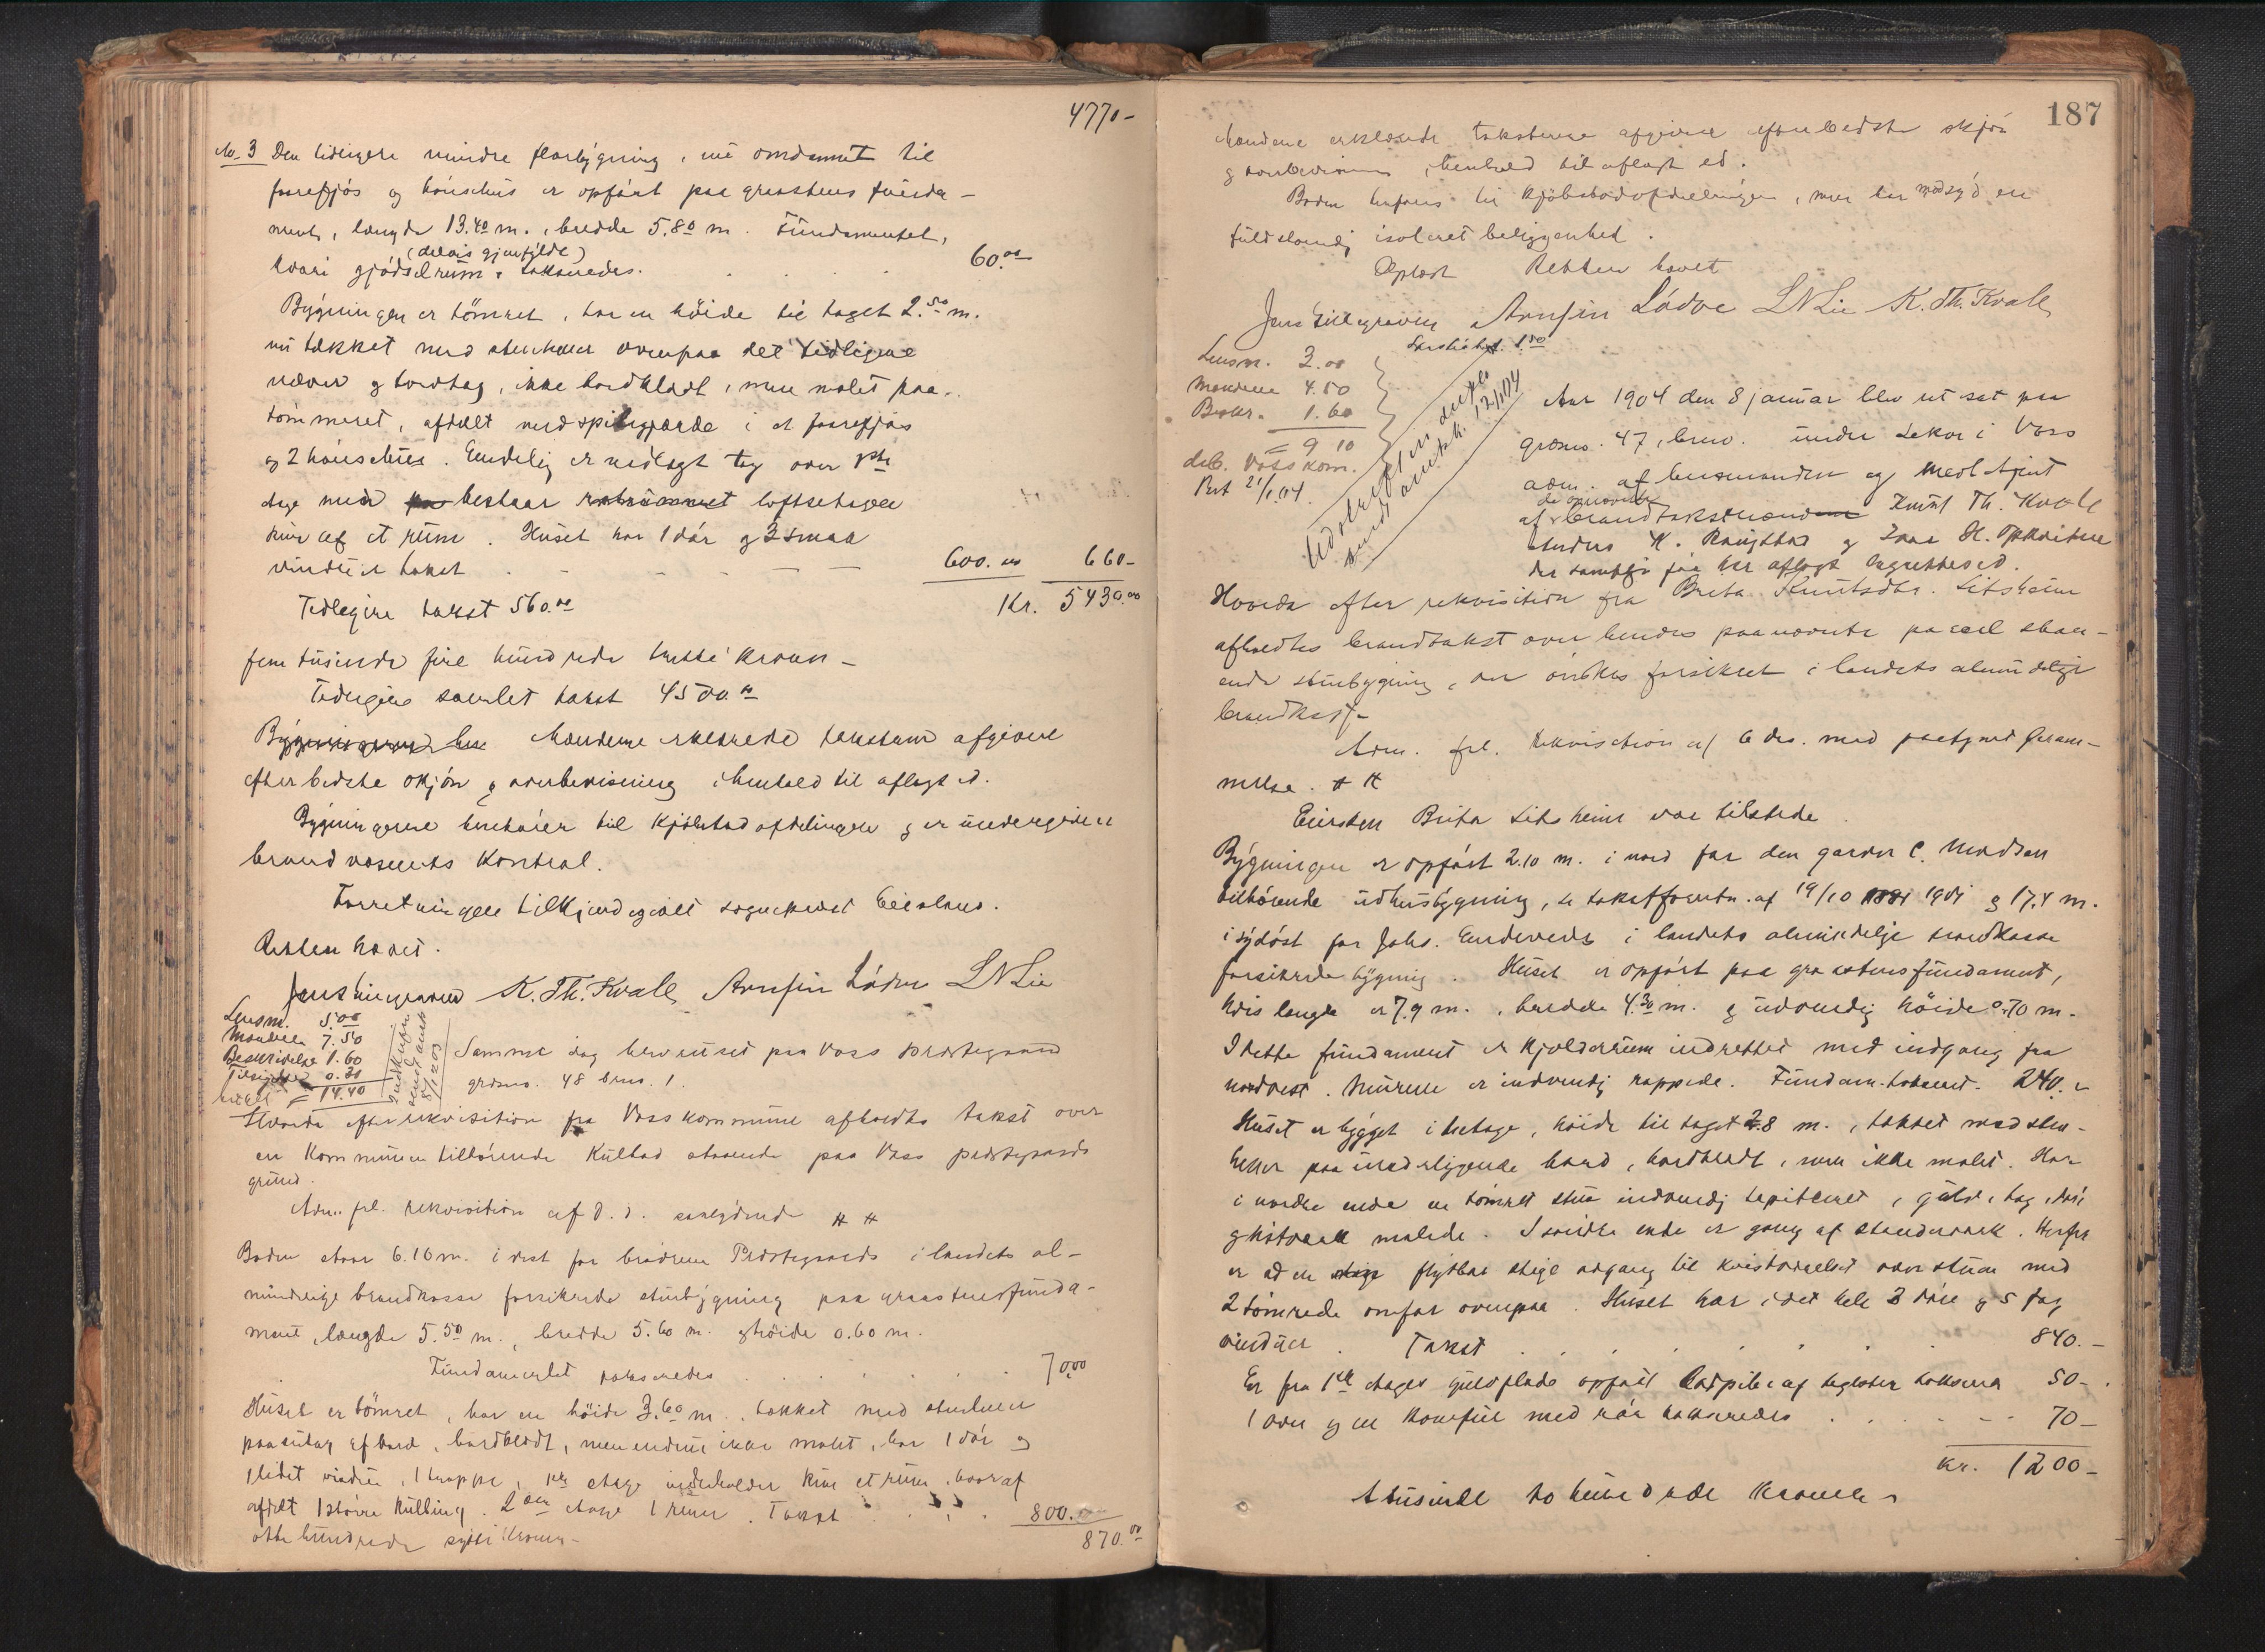 4770-
No. 3 Den tidligere mindre florbygning, nu omdannet til
faarefjøs og hønsehus er opført paa graastens funda-
ment, længde 13.40 m., bredde 5.80 m. Fundamentet,
(delvis gjenfyldt)
hvori gjødselrum, takseredes. 60.00
Bygningen er tømret, har en høide til taget 2.50 m.
nu tækket med stenheller ovenpaa det tidligere
næver og tordtag, ikke bordklædt, men malet paa
tømmeret, afdelt med spilegjærde i et faarefjøs
og 2 hønsehuse. Endelig er nedlagt tag over 1ste
etage med bestaar loftsetagen
kun af et rum. Huset har 1 dør og 3 smaa
vinduer takst 600.00 660-
Tidligere takst 560.00 Kr. 5430.00
fem tusinde fire hundrede tretti kroner -
Tidligere samlet takst 4500.00
Bygningerne hen Mændene erklærede taksterne afgivne
efter bedste skjøn og overbevisning i henhold til aflagt ed.
Bygningerne henhører til kjøbstadafdelingen og er undergivet
brandvæsenets kontrol.
Forretningen tilkjendegivet
Retten hævet.
K. Th. Kvale Arnfin Lødve L N Lie
Lensm. 5.00
Mændene 7.50
Beskrivelse 1.60
0.30
= 14.40
Samme dag blev retten sat paa Voss præstegaard
grdsno. 48 brno. 1.
Hvorda efter rekvisition fra Voss kommune afholdtes takst over
en kommunen tilhørende kulbod staaende paa Voss præstegaards
grund.
Adm. frl. rekvisition af d. d. saalydende # #
Boden staar 6.10 m. i vest for brødrene Præstegaards i landets al-
mindelige brandkasse forsikrede stuebygning paa graastensfunda-
ment, længde 5.50 m., bredde 5.60 m. og høide 0.60 m.
Fundamentet takseredes 70.00
Huset er tømret, har en høide 3.60 m., tækket med stenheller
paa sutag af bord, bordklædt, men endnu ikke malet, har 1 dør og
1 lidet vindu, 1 trappe, 1ste etage indeholder kun et rum, hvoraf
afdelt 1 større kulbing. 2den etage 1 rum. Takst 800.
otte hundrede sytti kroner - 870.00
187
Mændene erklærede taksterne afgivne efter bedste skjøn
og overbevisning i henhold til aflagt ed.
Boden henføres til kjøbstadafdelingen, men har en
fuldstændig isoleret beliggenhed.
Oplæst Retten hævet
Jens Lillegraven Arnfin Lødve L N Lie K. Th. Kvale
Lensm. 3.00
Mændene 4.50
Beskr. 1.60
= 9 10
deb. Voss kom.
Bet 21/1.04.
Udskrift in duplo
sendt amtsk. 12/1/04
Aar 1904 den 8 januar blev ret sat paa
grdsno. 47, brno. under i Voss
adm. af lensmanden og medbetjent
af de opnævnte brandtakstmænd Knut Th. Kvale
Anders K. Rongstad og Ivar H. Opkvitne
der samtlige før har aflagt lagrettesed.
Hvorda efter rekvisition fra Brita Knutsdtr. Litsheim
afholdtes brandtakst over hendes paa nævnte parcel staa-
ende stuebygning, der ønskes forsikret i landets almindelige
brandkasse.
Adm. frl. rekvisition af 6 ds. med paategnet beram-
melse. # #
Eiersken Brita Litsheim var tilstede.
Bygningen er opført 2.10 m. i nord for den garver C. Madsen
tilhørende udhusbygning, se takstforretn. af 19/10 1901 og 17.4 m.
i sydøst for Johs. Endeveds i landets almindelige brandkasse
forsikrede bygning. Huset er opført paa graastensfundament,
hvis længde er 7.9 m., bredde 4.30 m. og udvendig høide 0.70 m.
I dette fundament er kjelderrum indrettet med indgang fra
nordvest. Murene er indvendig rappede. Fundam. takseret. 240.-
Huset er bygget i en etage, høide til taget 2.8 m., tækket med sten-
heller paa underliggende bord, bordklædt, men ikke malet. Har
i nordre ende en tømret stue indvendig tapitseret, gulv, tag, dør
og listværk malede. I søndre ende er gang af stenderværk. Herfra
er ad en flytbar stige adgang til kvistværelset over stuen med
2 tømrede omfar ovenpaa. Huset har i det hele 3 døre og 5 fag
vinduer. Takst 840.-
En fra 1ste etages gulvflade opført ladpibe af teglsten takseres 50-
1 ovn og en komfur med rør takseredes 70-
kr. 1200-
Et tusinde to hundrede kroner